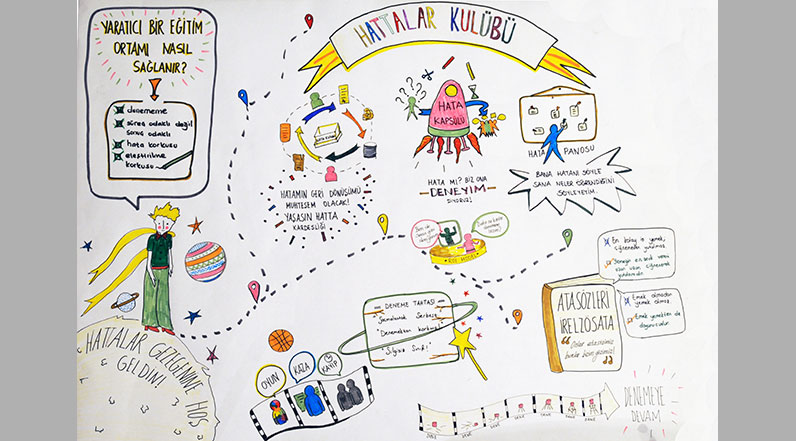 HATTALAR KULÜBÜ
YARATICI BİR EĞİTİM
ORTAMI NASIL
SAĞLANIR?
denememe
süreç odaklı değil
sonuç odaklı
hata korkusu
eleştirilme
korkusu
HATAMIN GERİ DÖNÜŞÜMÜ
MUHTEŞEM OLACAK!
YAŞASIN HATTA
KARDEŞLİĞİ
HATA
KAPSÜLÜ
HATA MI? BİZ ONA
DENEYİM
DİYORUZ!
HATA PANOSU
BANA HATANI SÖYLE
SANA NELER ÖĞRENDİĞİNİ
SÖYLEYEYİM.
ROL MODEL
HATTALAR GEZEGENİNE HOŞ
GELDİN!
OYUN
KAZA
KAYIP
DENEME TAHTASI
"Denemekten korkmayın"
"Silgisiz Sınıf!"
ATASÖZLERİ
İRELZÖSATA
En kolay iş yemek,
Emek olmadan
yemek olmaz.
Emek yemekten de
DENE
DENE
DENE
DENE
DENE
DENEMEYE
DEVAM